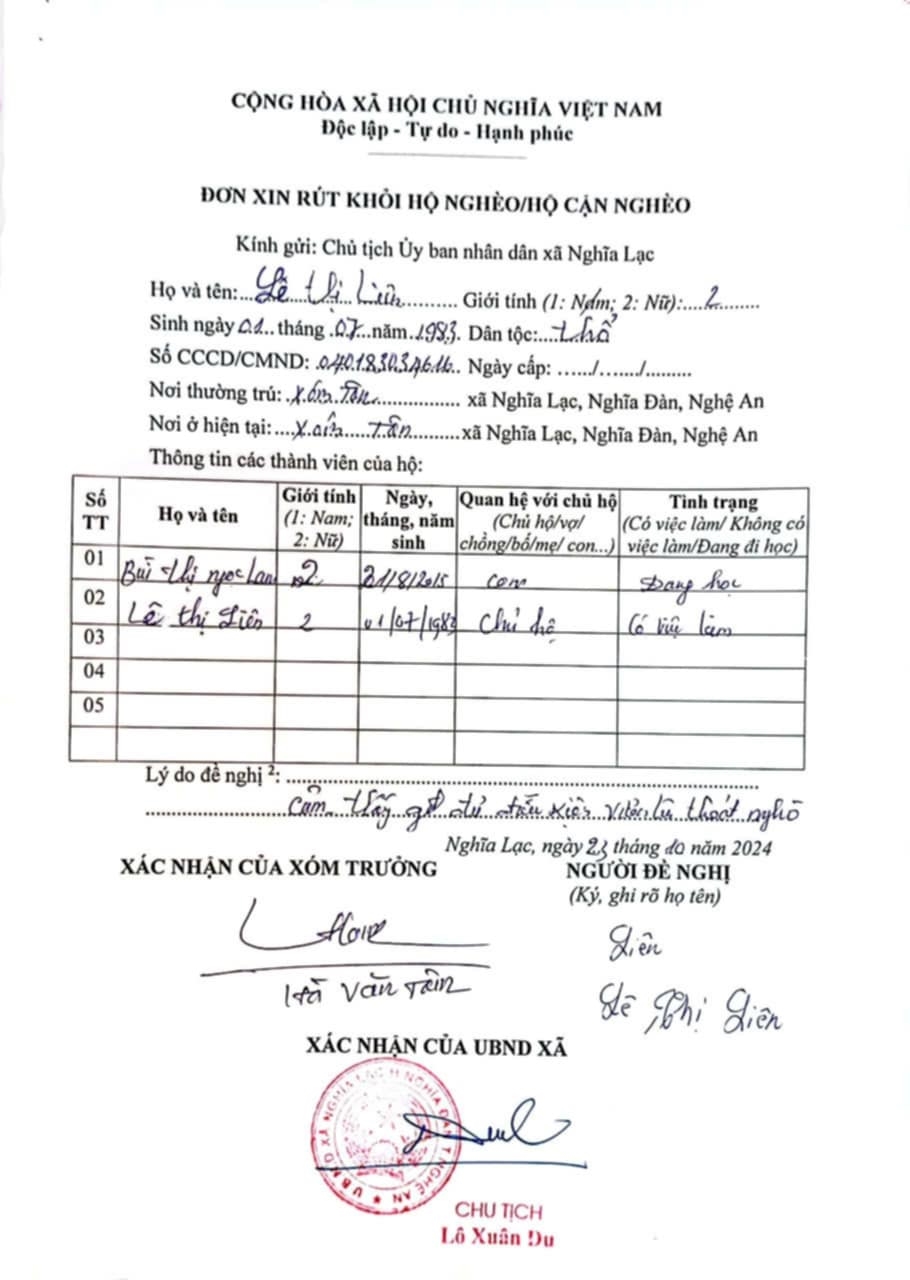 CỘNG HÒA XÃ HỘI CHỦ NGHĨA VIỆT NAM
Độc lập - Tự do - Hạnh phúc
ĐƠN XIN RÚT KHỎI HỘ NGHÈO/HỘ CẬN NGHÈO
Kính gửi: Chủ tịch Ủy ban nhân dân xã Nghĩa Lạc
Họ và tên:...Lê Thị Liên.......... Giới tính (1: Nam; 2: Nữ):....2........
Sinh ngày 01.. tháng .07...năm .1983. Dân tộc:....thổ
Số CCCD/CMND: .040183034616.. Ngày cấp: …../……./.........
Nơi thường trú: .Xóm Tân................ xã Nghĩa Lạc, Nghĩa Đàn, Nghệ An
Nơi ở hiện tại:....Xóm.....Tân...........xã Nghĩa Lạc, Nghĩa Đàn, Nghệ An
Thông tin các thành viên của hộ:
Số TT Họ và tên Giới tính (1: Nam; 2: Nữ) Ngày, tháng, năm sinh Quan hệ với chủ hộ (Chủ hộ/vợ/ chồng/bố/mẹ/ con...) Tình trạng (Có việc làm/ Không có việc làm/Đang đi học)
01 Bùi thị ngọc lan 2 /8/2015 con Đang học
02 Lê thị Liên 2 01/07/1983 Chủ hộ Có việc làm
03
04
05
Lý do đề nghị 2: ................................................................................
.........................Cảm thấy gđ đủ điều kiện vươn lên thoát nghèo
Nghĩa Lạc, ngày 23 tháng 10 năm 2024
XÁC NHẬN CỦA XÓM TRƯỞNG NGƯỜI ĐỀ NGHỊ
(Ký, ghi rõ họ tên)
Liên
Hà Văn Tâm Lê Thị Liên
XÁC NHẬN CỦA UBND XÃ
U.B.N.D XÃ NGHĨA LẠC H. NGHĨA ĐÀN T. NGHỆ AN
CHỦ TỊCH
Lô Xuân Du